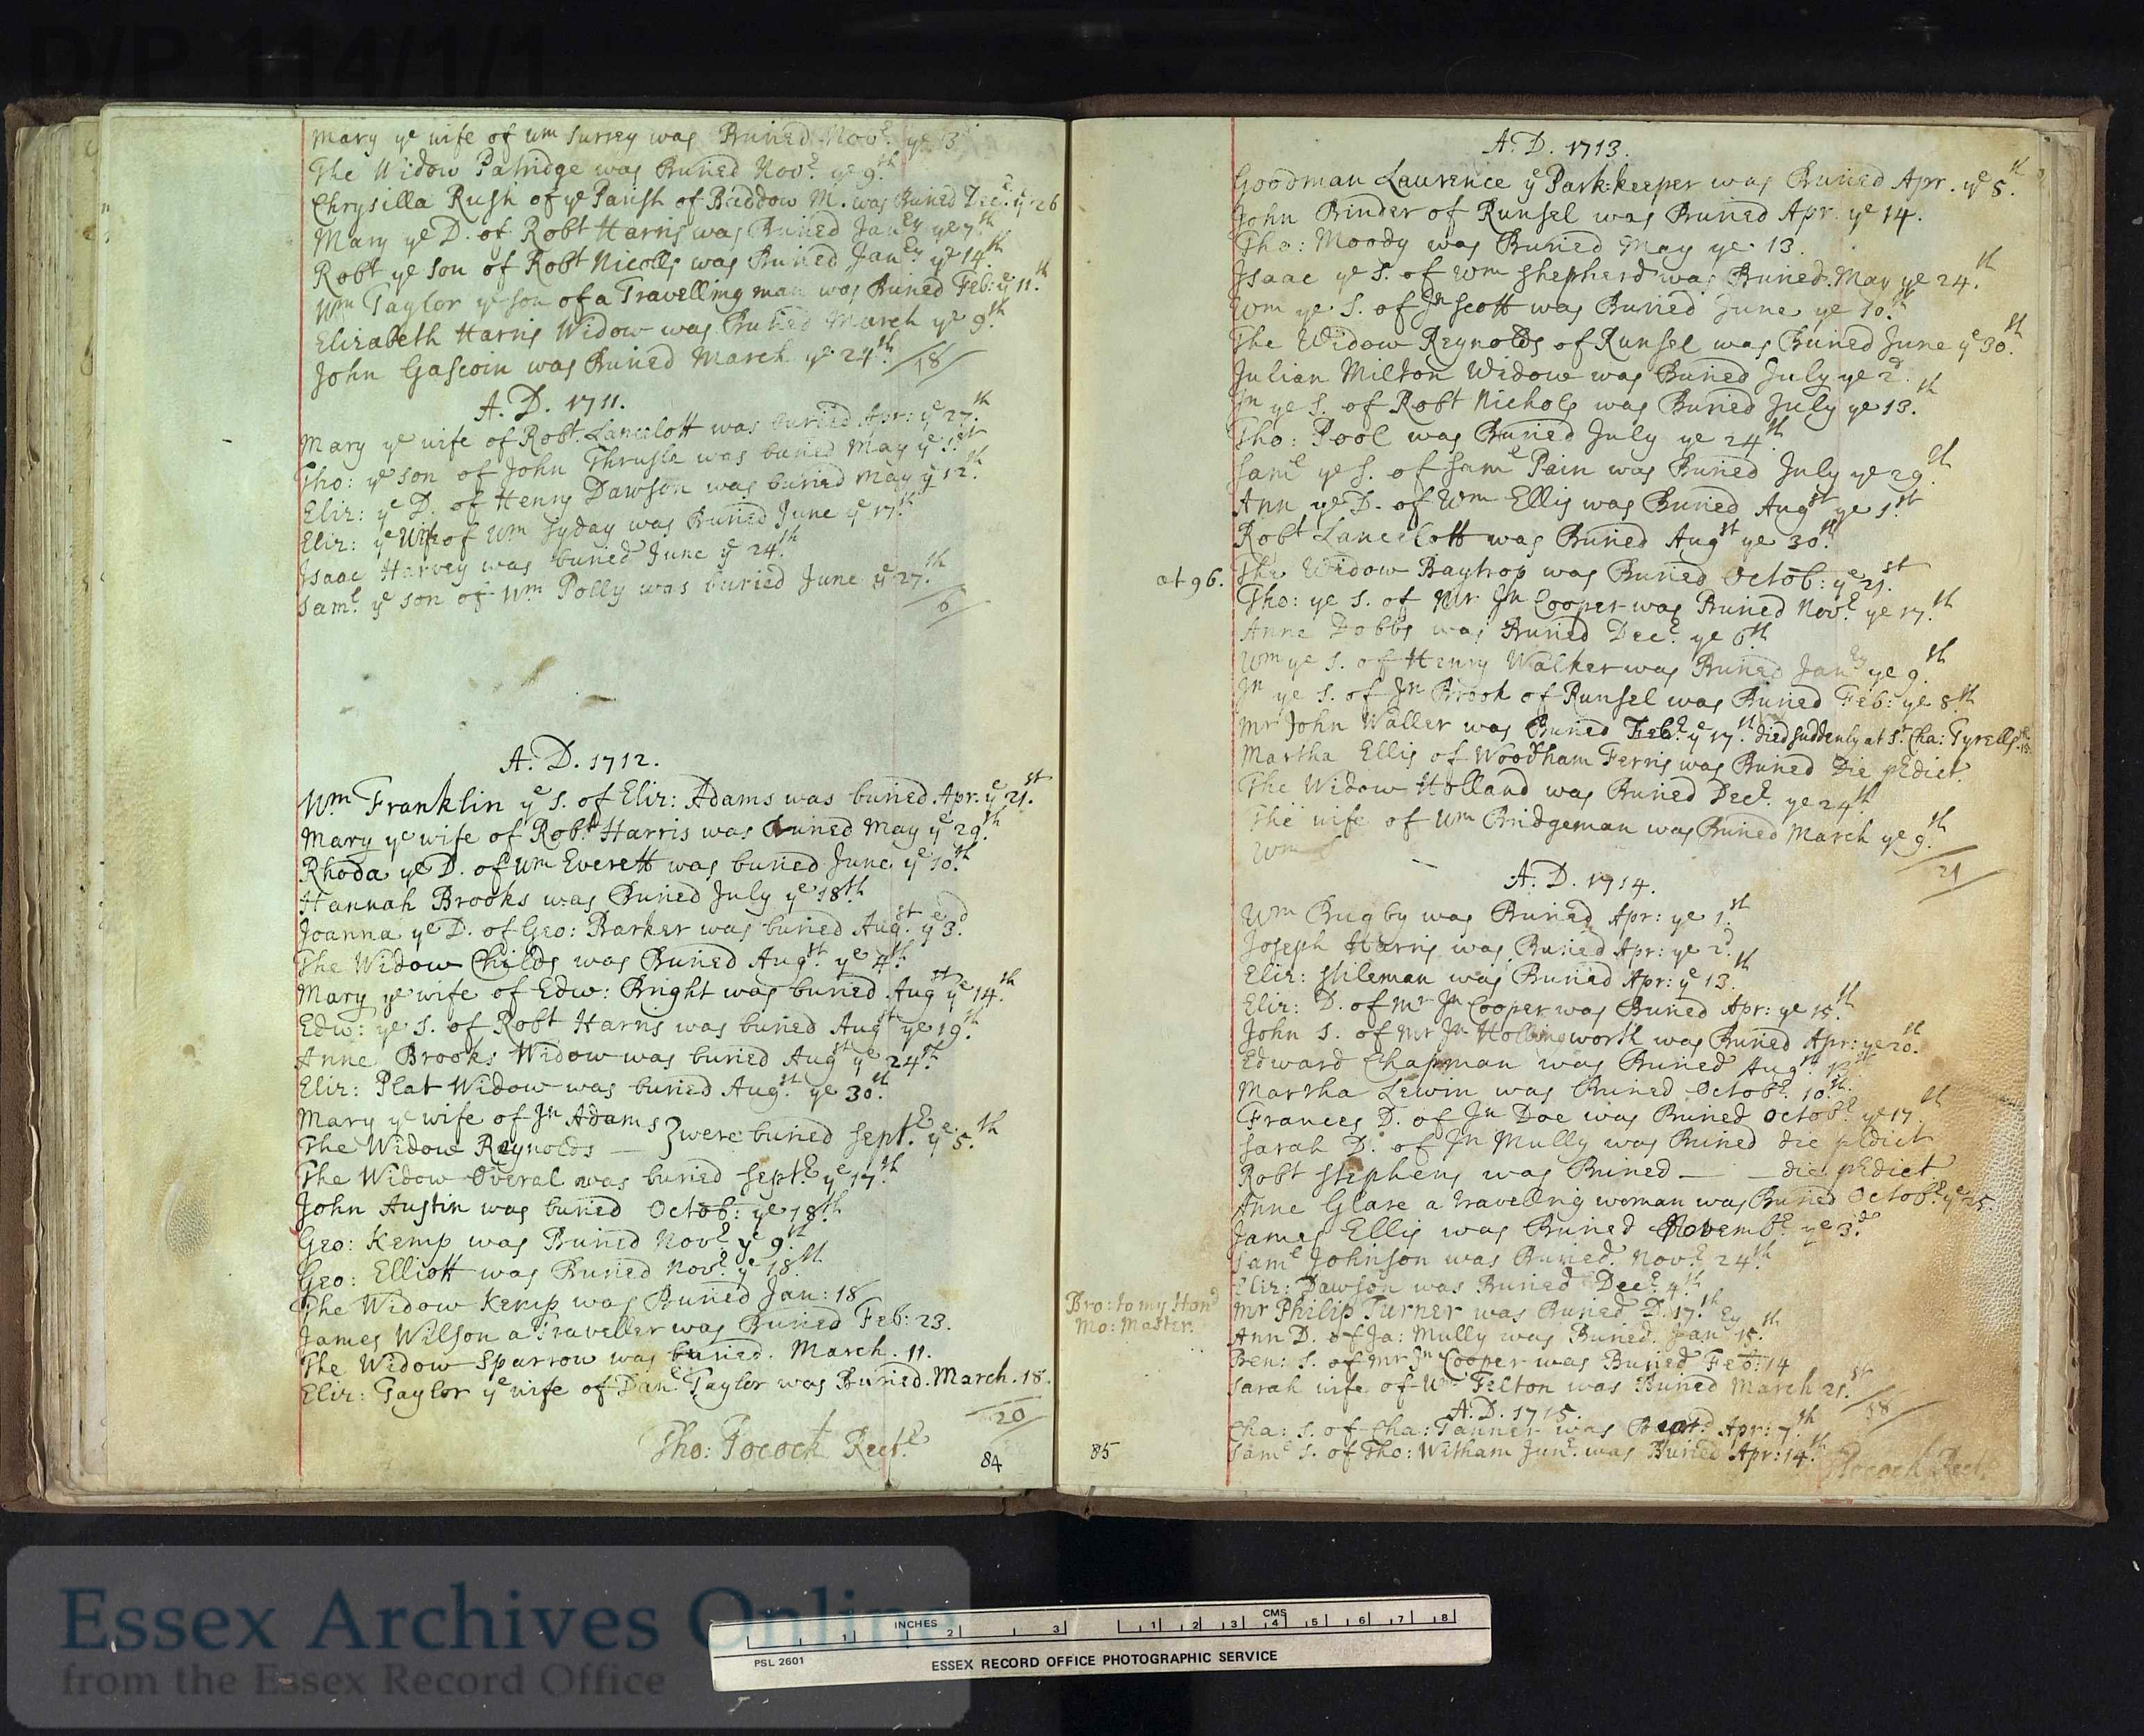 D/P 114/1/1
Mary ye wife of Wm Surrey was Buried Novr. ye 3
The Widow Patridge was Buried Novr. ye 9th.
Chrysilla Rush of ye Parish of Baddow M. was Buried Decr. ye 26
Mary ye D. of Robt Harris was Buried Janry ye 7th
Robt ye son of Robt Nicolls was Buried Janry ye 14th.
Wm Taylor ye son of a Travelling man was Buried Feb: ye 11th.
Elizabeth Harris Widow was Buried March ye 9th.
John Gascoin was Buried March ye 24th. /18/
A. D. 1711.
Mary ye wife of Robt. Lancelott was buried Apr: ye 27th.
Tho: ye son of John Thrussle was buried May ye 1st
Eliz: ye D. of Henry Dawson was buried May ye 12th.
Eliz: ye Wife of Wm Syday was Buried June ye 17th.
Isaac Harvey was buried June ye 24th.
Saml. ye son of Wm Polly was buried June ye 27th.
/6/
A. D. 1712.
Wm Franklin ye S. of Eliz: Adams was buried Apr. ye 21st.
Mary ye wife of Robt Harris was Buried May ye 29th.
Rhoda ye D. of Wm Everett was buried June ye 10th.
Hannah Brooks was Buried July ye 18th.
Joanna ye D. of Geo: Barker was buried Augst. ye 3d.
The Widow Childs was Buried Augst. ye 4th.
Mary ye wife of Edw: Bright was buried Augst ye 14th.
Edw: ye S. of Robt Harris was buried Augst ye 19th.
Anne Brooks Widow was buried Augst ye 24th.
Eliz: Plat Widow was buried Augst. ye 30th.
Mary ye wife of Jn Adams } were buried Septr. ye 5th.
The Widow Reynolds —
The Widow Overal was buried Septr. ye 17th.
John Austin was buried Octob: ye 18th.
Geo: Kemp was Buried Novr. ye 9th.
Geo: Elliott was Buried Novr. ye 18th.
The Widow Kemp was Buried Jan: 18
James Wilson a Traveller was Buried Feb: 23.
The Widow Sparrow was buried. March. 11.
Eliz: Taylor ye wife of Danl Taylor was Buried. March. 18.
/20/
Tho: Pocock Rectr
84
A. D. 1713.
Goodman Laurence ye Park-keeper was Buried Apr. ye 5th.
John Binder of Runsel was Buried Apr. ye 14.
Tho: Moody was Buried May ye 13.
Isaac ye S. of Wm Shepherd was Buried May ye 24th.
Wm ye S. of Jn Scott was Buried June ye 10th.
The Widow Reynolds of Runsel was Buried June ye 30th.
Julian Milton Widow was Buried July ye 2d.
Jn ye S. of Robt Nichols was Buried July ye 13th.
Tho: Pool was Buried July ye 24th.
Saml ye S. of Saml Pain was Buried July ye 29th.
Ann ye D. of Wm Ellis was Buried Augst ye 1st
Robt Lancelott was Buried Augst ye 30th.
at 96. The Widow Baytrop was Buried Octob: ye 21st.
Tho: ye S. of Mr Jn Cooper was Buried Novr ye 17th.
Anne Dobbs was Buried Decr. ye 6th
Wm ye S. of Henry Walker was Buried Janry ye 9th.
Jn ye S. of Jn Brook of Runsel was Buried Feb: ye 8th
Mr John Waller was Buried Febr. ye 17th. died suddenly at Sr. Cha: Tyrells
Martha Ellis of Woodham Ferris was Buried Die pdict.
The Widow Holland was Buried Decr. ye 24th
The wife of Wm Bridgeman was Buried March ye 9th.
Wm
/21/
A. D. 1714.
Wm Bugby was Buried Apr: ye 1st.
Joseph Harris was Buried Apr: ye 2d.
Eliz: Stileman was Buried Apr: ye 13th.
Eliz: D. of Mr Jn Cooper was Buried Apr: ye 15th.
John S. of Mr Jn Hollingsworth was Buried Apr: ye 20th.
Edward Chapman was Buried Augst.
Martha Lewin was Buried Octobr. 10th.
Frances D. of Jn Doe was Buried Octobr ye 17th.
Sarah D. of Jn Mully was Buried die pdict
Robt Stephens was Buried — — die pdict
Anne Glare a travelling woman was Buried Octobr. ye 25.
James Ellis was Buried Novembr. ye 3d.
Saml Johnson was Buried. Novr. 24th.
Eliz: Dawson was Buried Decr. 4th.
Bro: to my Hond
Mo: Master.
Mr Philip Turner was Buried D. 17th.
Ann D. of Ja: Mully was Buried. Janry 15th.
Ben: S. of Mr Jn Cooper was Buried Feb: 14
Sarah wife of Wm Felton was Buried March 21st.
/18/
A. D. 1715.
Cha: S. of Cha: Tanner was Buried Apr: 7th.
Saml S. of Tho: Witham Junr. was Buried Apr: 14th.
Pocock Rectr
85
Essex Archives Online
from the Essex Record Office
INCHES
1 2 3
CMS
1 2 3 4 5 6 7 8
PSL 2601
ESSEX RECORD OFFICE PHOTOGRAPHIC SERVICE